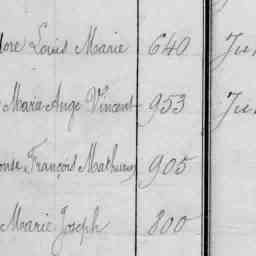 dore Louis Marie 640 Ju
Marie Ange Vincent 953 Ju
onse François Mathurin 905
Marie Joseph 800